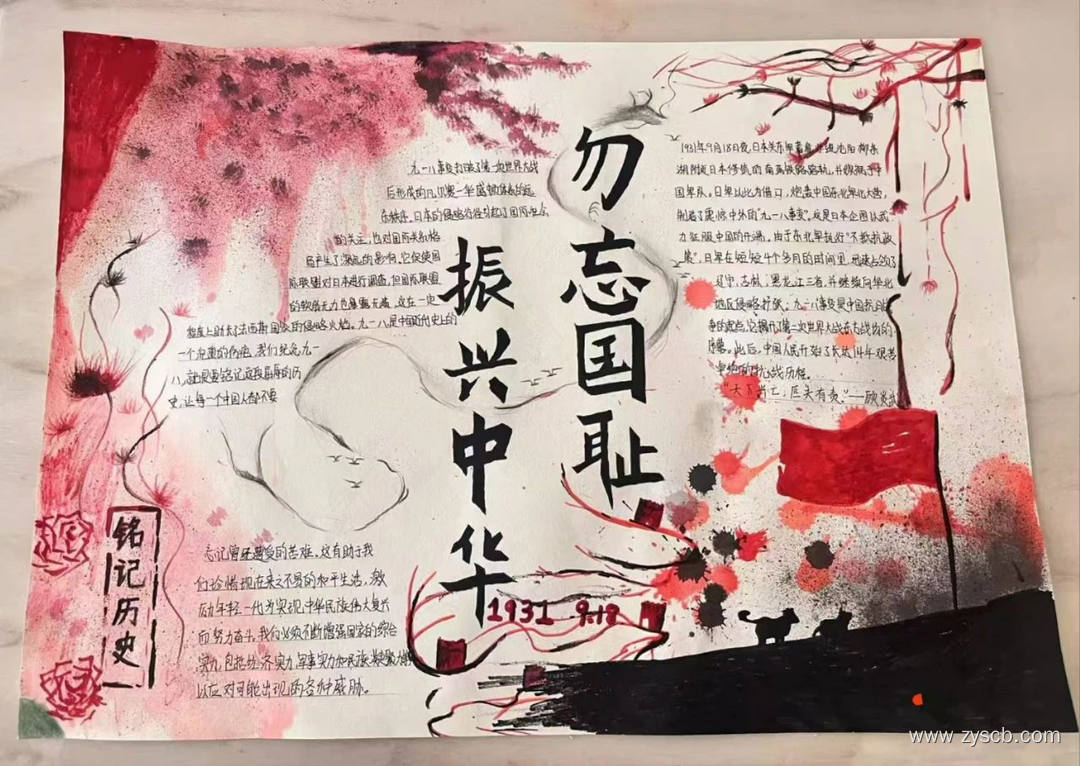 勿忘国耻
振兴中华
1931年9月18日夜,日本关东军蓄意
湖附近日本修筑的南满铁路路轨,并
国军队。日军以此为借口,炮轰中国东北军北大营,
制造了震惊中外的"九一八事变"。这是日本企图以武
力征服中国的开端。由于东北军执行"不抵抗政
策",日军在短短4个多月的时间里,迅速占领了
辽宁,吉林,黑龙江三省,并继续向华北
地区侵略扩张。九一八事变是中国抗日战
争的起点,它揭开了第二次世界大战东方战场的
序幕。此后,中国人民开始了长达14年艰苦
抗战历程。
"天下兴亡,匹夫有责。"——顾炎武
九一八事变打破了第一次世界大战
后形成的凡尔赛—华盛顿体系的远
东秩序。日本的侵略行径引起了国际社会
的关注,也对国际关系格
局产生了深远的影响。它促使国
际联盟对日本进行调查,但国际联盟
的软弱无力也暴露无遗,这在一定
程度上助长了法西斯国家的侵略火焰。九一八是中国近代史上的
一个沉重的伤疤,我们纪念九一
八,就是要铭记这段屈辱的历
史,让每一个中国人都不要
忘记曾经遭受的苦难。这有助于我
们珍惜现在来之不易的和平生活,激
励年轻一代为实现中华民族伟大复兴
而努力奋斗。我们必须不断增强国家的综合
实力,包括经济实力、军事实力和民族凝聚力
以应对可能出现的各种威胁。
铭记历史
1931 9.18
www.zyscb.com